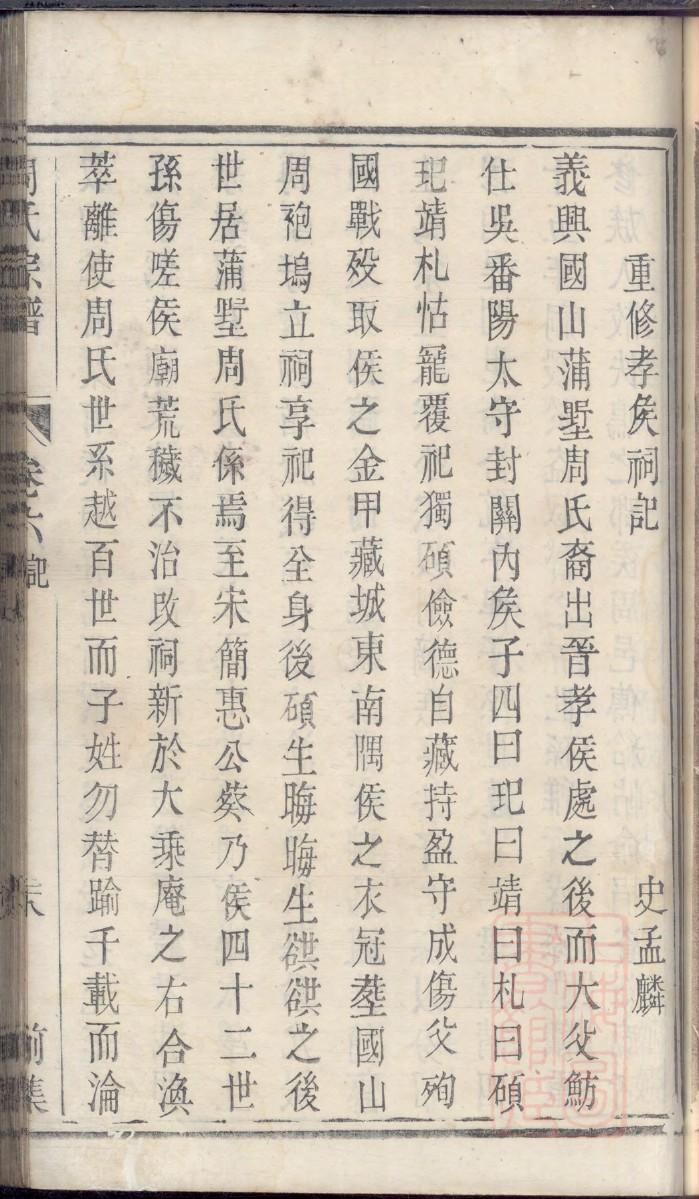 重修孝矦祠記
史孟麟
義興國山蒲墅周氏裔出晉孝侯處之後而大父魴
仕吳番陽太守封關內矦子四曰玘曰靖曰札曰碩
玘靖札怙寵覆祀獨碩儉德自藏持盈守成傷父殉
國戰歿取侯之金甲藏城東南隅侯之衣冠塟國山
周袍塢立祠享祀得全身後碩生晦晦生䛢䛢之後
世居蒲墅周氏係焉至宋簡惠公葵乃侯四十二世
孫傷嗟矦廟荒穢不治改祠新於大乘庵之右合渙
萃離使周氏世系越百世而子姓勿替踰千載而淪
周氏宗譜
卷六
記
前集